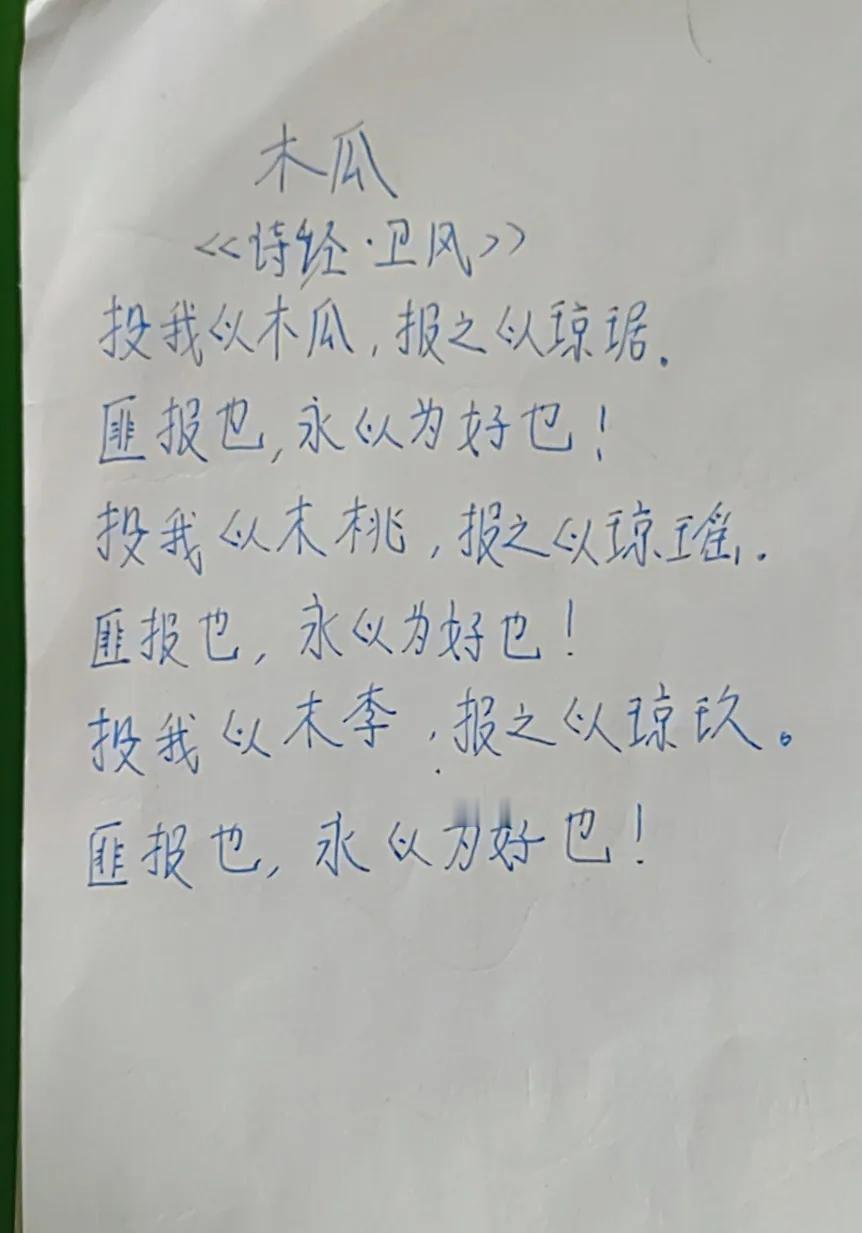 木瓜
<<诗经·卫风>>
投我以木瓜,报之以琼琚.
匪报也,永以为好也!
投我以木桃,报之以琼瑶.
匪报也,永以为好也!
投我以木李,报之以琼玖。
匪报也,永以为好也!